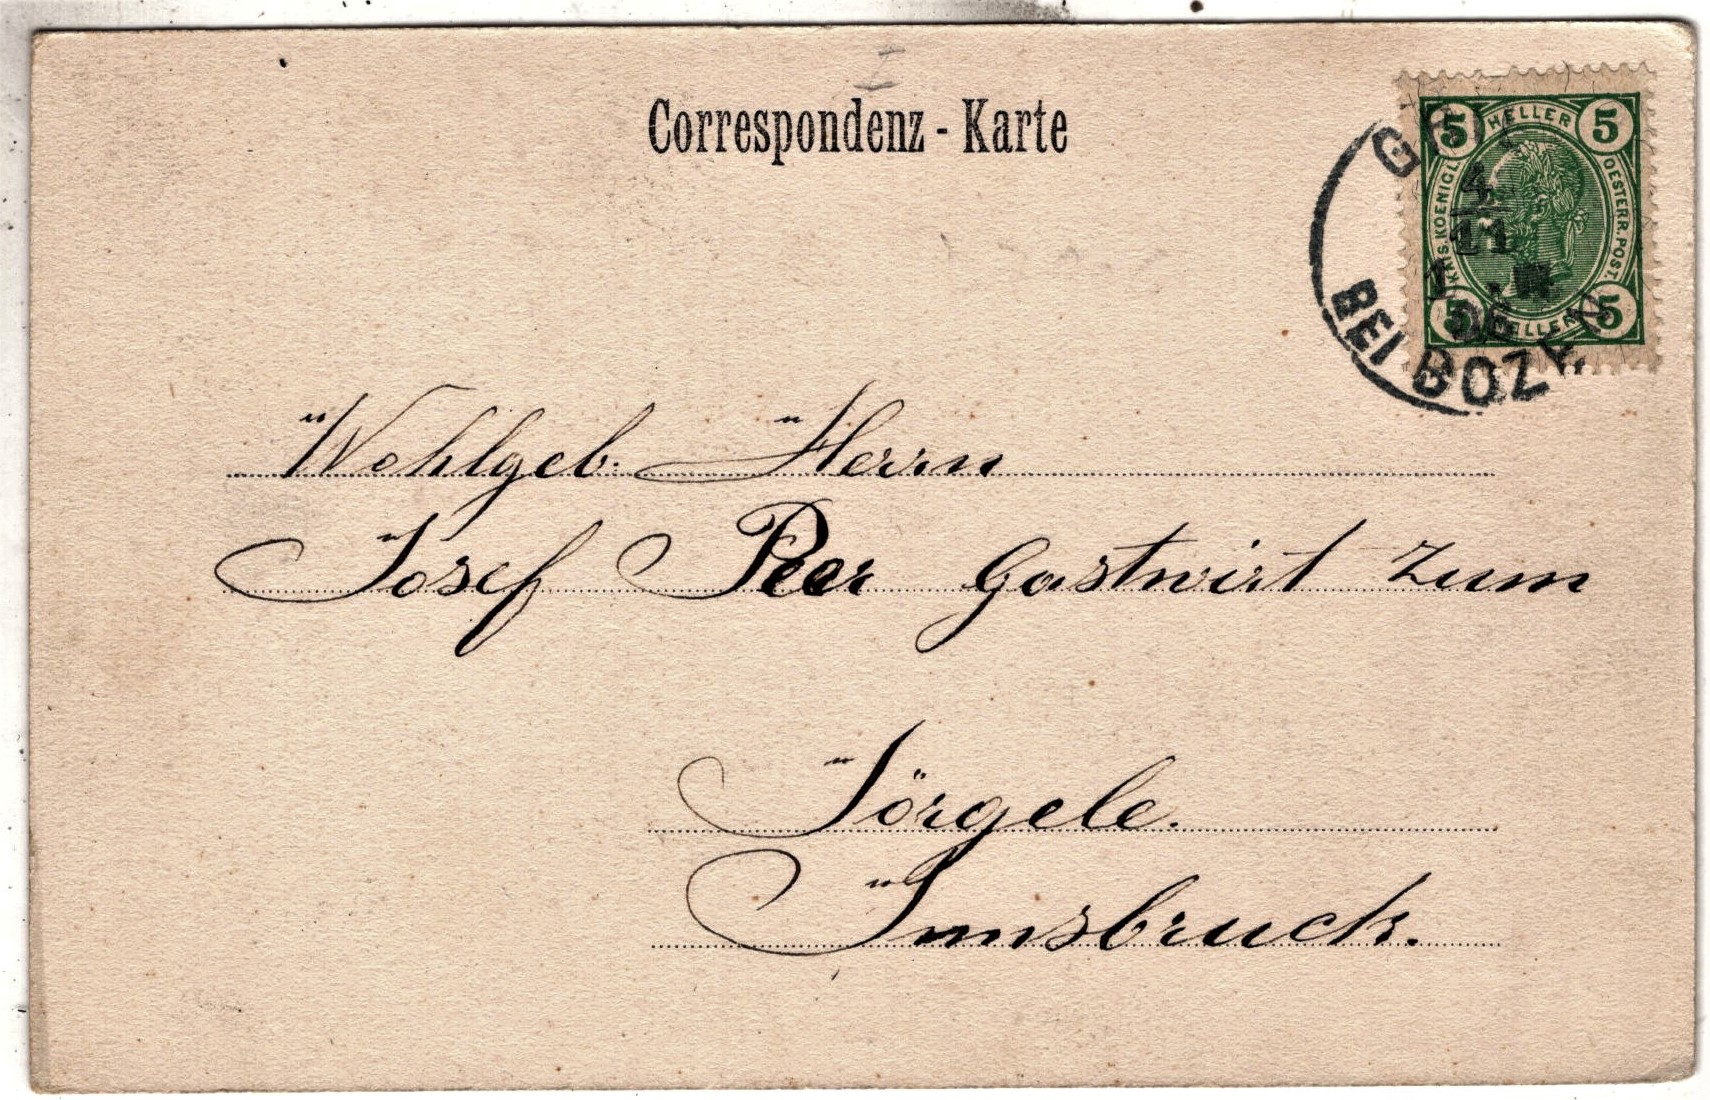 Correspondenz - Karte
5 HELLER 5
KAIS. KOENIGL. OESTERR. POST.
5 HELLER 5
4
11
05
BEI BOZEN
Wohlgeb. Herrn
Josef Peer Gastwirt zum
Jörgele.
Innsbruck.